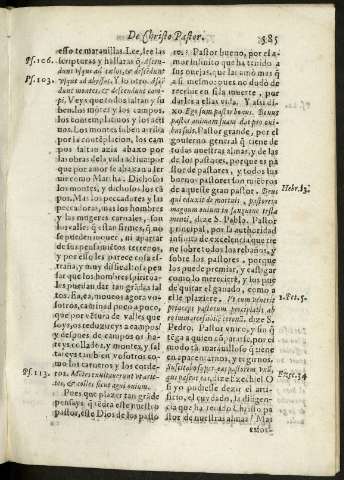 De Christo Pastor.
585
esso te marauillas. Lee, lee las
Ps. 106.
scripturas y hallaras q̃ Ascen-
dunt vsque ad cœlos, & descẽdunt
Ps. 103.
vsque ad abyssos. Y lo otro. Ascẽ-
dunt montes, & descendunt cam-
pi, Veys que todos saltan y su
ben. los montes y los cãpos, los
contemplatiuos y los acti
uos. Los montes suben arriba
por la contẽplacion, los cam
pos saltan azia abaxo por
las obras de la vida actiua por
que por amor se abaxan a ser
uir como Martha. Dichosos
los montes, y dichosos los cã
pos. Mas los peccadores y las
peccadoras, mas los hombres
y las mugeres carnales, son
los valles q̃ estan firmes, q̃ no
se pueden
de sus pensamiẽtos terrenos,
y por esso les parece cosa es-
traña, y muy difficultosa pen
sar que los hombres spirituales
puedan dar tan grãdes sal
tos. Ea, ea, moueos agora vo-
sotros, caminad poco a poco,
que por vẽtura de valles que
soys, os reduzireys a campos
y despues de campos os ha-
reys collados, y montes, y sal
tareys tambien vosotros co-
mo los carneros y los corde-
Ps. 113.
ros. Montes exultauerunt vt arie-
tes, & colles sicut agni ouium.
Pues que plazer tan grãde
pensays q̃ seria este nuestro
pastor, este Dios de los pasto
res? Pastor bueno, por el a-
mor infinito que ha tenido a
sus ouejas, que las amó mas q̃
a si mesmo, pues que no re-
husó de recibir la muerte, por
darles a ellas vida. Y assi di-
xo. Ego sum pastor bonus. Bonus
pastor animam suam dat pro oui-
bus suis. Pastor grande, por el
gouierno general q̃ tiene de
todas nuestras almas, y de las
de los pastores, porque es pa
stor de pastores, y todos los
buenos pastores son miẽbros
de aqueste gran pastor. Deus
Hebr. 13.
qui eduxit de mortuis, pastorẽ
magnum ouium in sanguine testa
menti, dize S. Pablo. Pastor
principal, por la authoridad
infinita de excelencia que tie
ne sobre todos los rebaños, y
sobre los pastores, porque
los puede premiar, y castigar
como lo mereciere, y los pue
de quitar el ganado, como a
el le plaziere. Et cum venerit
1. Pet. 5.
princeps pastorum percipietis
dize S.
Pedro. Pastor vnico, y sin q̃
tẽga a quien cõpararse, por el
modo tã marauilloso q̃ tiene
en apacentarnos, y regirnos.
Suscitabo super eas pastorem vnũ,
Ezec. 34
qui pascat eas, dize Ezechiel. O
si yo pudiesse dezir el arti-
ficio, el cuydado, la diligen-
cia que ha tenido Christo pa
stor de nuestras almas! Mas